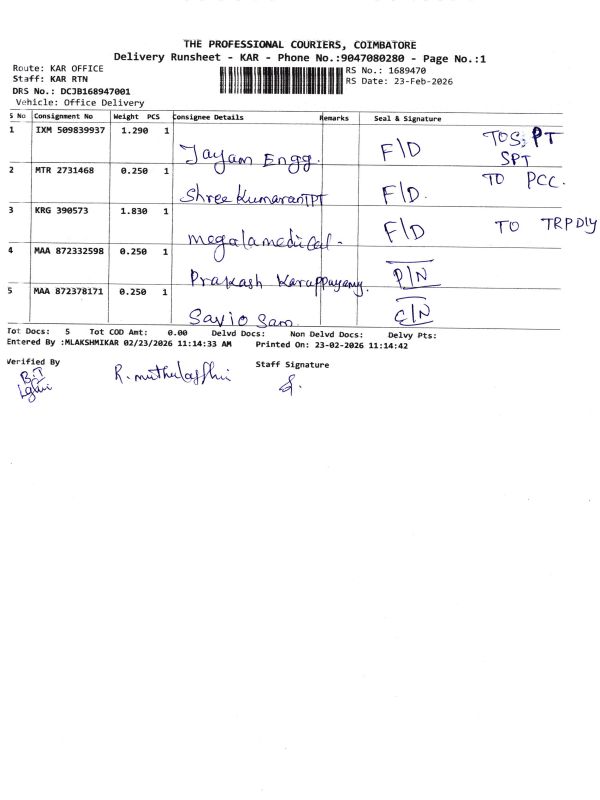 THE PROFESSIONAL COURIERS, COIMBATORE
Delivery Runsheet - KAR - Phone No.:9047080280 - Page No.:1
Route: KAR OFFICE
Staff: KAR RTN
DRS No.: DCJB168947001
Vehicle: Office Delivery
RS No.: 1689470
RS Date: 23-Feb-2026
S No Consignment No Weight PCS Consignee Details Remarks Seal & Signature
1 IXM 509839937 1.290 1 Jayam Engg. F/D TOS; PT
SPT
2 MTR 2731468 0.250 1 Shree KumaranTPT F/D. TO PCC.
3 KRG 390573 1.830 1 megalamedical- F/D TO TRPDly
4 MAA 872332598 0.250 1 Prakash Karuppuyamy. P/N
5 MAA 872378171 0.250 1 Savio Sam. C/N
Tot Docs: 5 Tot COD Amt: 0.00 Delvd Docs: Non Delvd Docs: Delvy Pts:
Entered By :MLAKSHMIKAR 02/23/2026 11:14:33 AM Printed On: 23-02-2026 11:14:42
Verified By
Staff Signature
B.T
R.